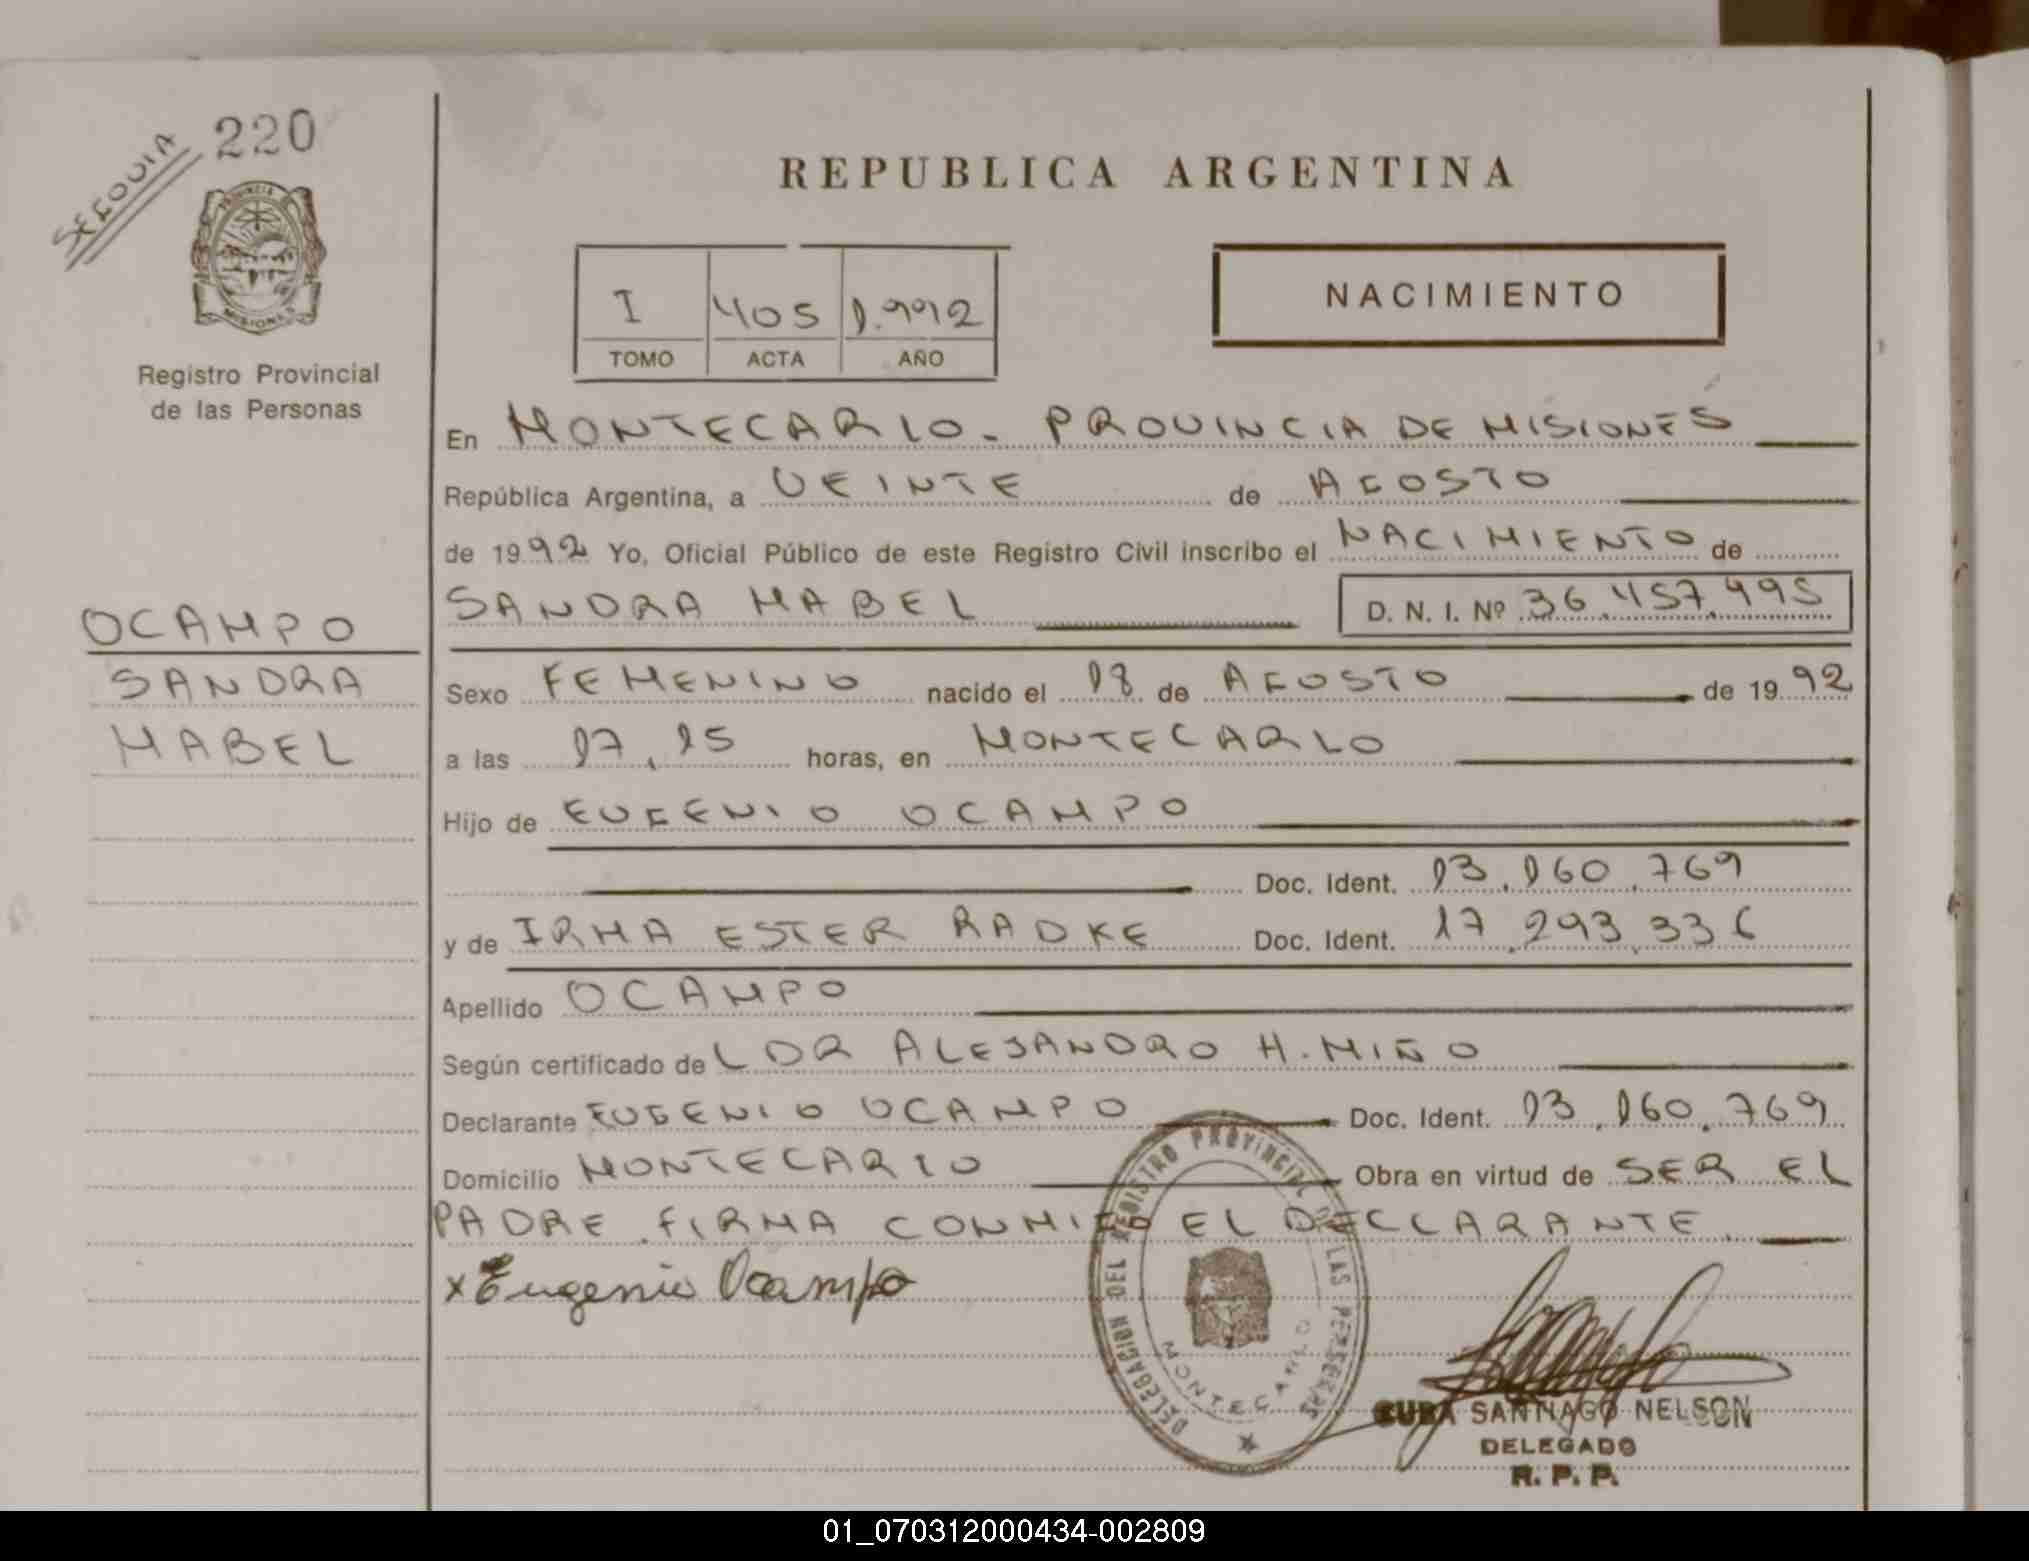 SEGOVIA 220
PROVINCIA
MISIONES
Registro Provincial
de las Personas
REPUBLICA ARGENTINA
I 405 1.992
TOMO ACTA AÑO
NACIMIENTO
En MONTECARLO - PROVINCIA DE MISIONES
República Argentina, a VEINTE de AGOSTO
de 1992 Yo, Oficial Público de este Registro Civil inscribo el NACIMIENTO de
SANDRA MABEL D. N. I. Nº 36.457.495
OCAMPO
SANDRA
MABEL
Sexo FEMENINO nacido el 18 de AGOSTO de 1992
a las 17,15 horas, en MONTECARLO
Hijo de EUGENIO OCAMPO
Doc. Ident. 13.160.769
y de IRMA ESTER RADKE Doc. Ident. 17.293.336
Apellido OCAMPO
Según certificado de L DR ALEJANDRO H. MIÑO
Declarante EUGENIO OCAMPO Doc. Ident. 13.160.769
Domicilio MONTECARLO Obra en virtud de SER EL
PADRE. FIRMA CONMIGO EL DECLARANTE.
x Eugenio Ocampo
DELEGACION DEL REGISTRO PROVINCIAL DE LAS PERSONAS
MONTECARLO
CUBA SANTIAGO NELSON
DELEGADO
R. P. P.
01_070312000434-002809